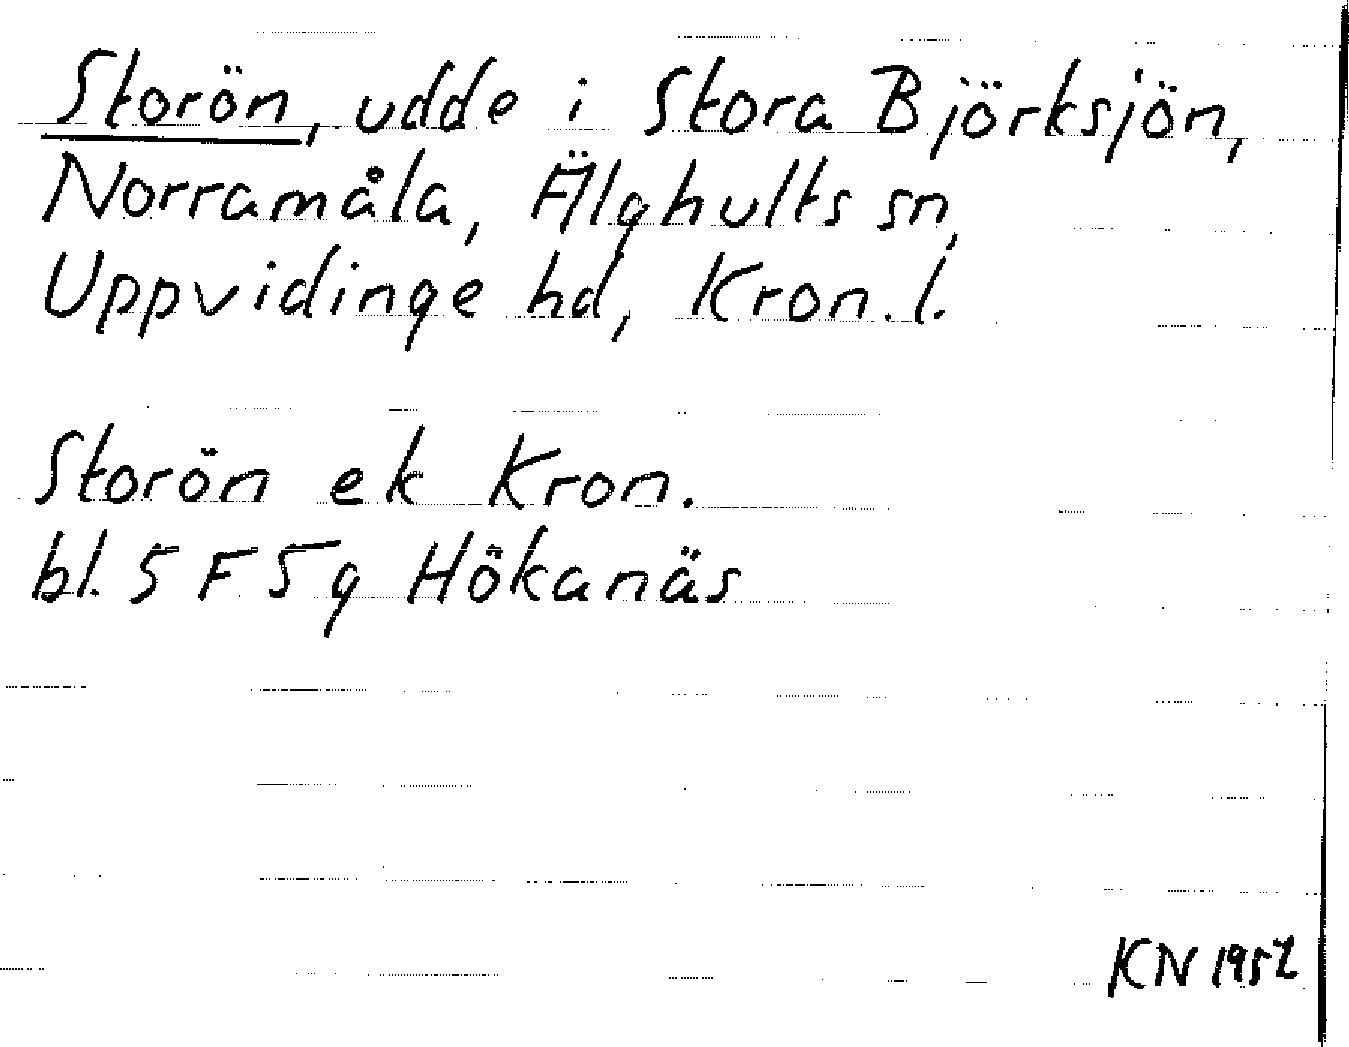 Storön, udde i Stora Björksjön,
Norramåla, Älghults sn,
Uppvidinge hd, Kron. l.
Storön ek Kron.
bl. 5 F 5 g Hökanäs
KN 1952